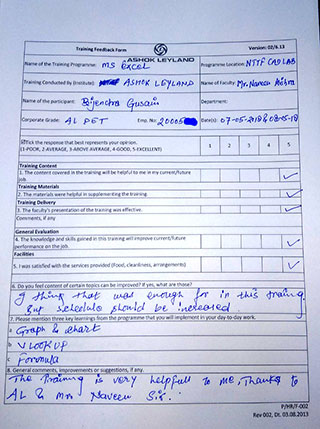 Training Feedback Form
ASHOK LEYLAND
Version: 02/6.13
Name of the Training Programme: MS EXCEL
Programme Location: NTTF CAD LAB
Training Conducted by (Institute): ASHOK LEYLAND
Name of Faculty: Mr. Naveen
Name of the participant: Bijendra Gusain
Department:
Corporate Grade: AL PET
Emp. No: 20005
Date(s): 07-05-2018 & 08-05-18
Tick the response that best represents your opinion.
(1-POOR, 2-AVERAGE, 3-ABOVE AVERAGE, 4-GOOD, 5-EXCELLENT)
1 2 3 4 5
Training Content
1. The content covered in the training will be helpful to me in my current/future
job.
Training Materials
2. The materials were helpful in supplementing the training
Training Delivery
3. The faculty's presentation of the training was effective.
Comments, if any
General Evaluation
4. The knowledge and skills gained in this training will improve current/future
performance on the job.
Facilities
5. I was satisfied with the services provided (Food, cleanliness, arrangements)
6. Do you feel content of certain topics can be improved? If yes, what are those?
I thing that was enough for in this traing
But schedule should be increased
7. Please mention three key learnings from the programme that you will implement in your day-to-day work.
a Graph & chart
b VLOOKUP
c Formula
8. General comments, improvements or suggestions, if any.
The Training is very helpfull to me, Thanks to
AL & Mr Naveen Sir.
P/HR/F-002
Rev 002, Dt. 03.08.2013